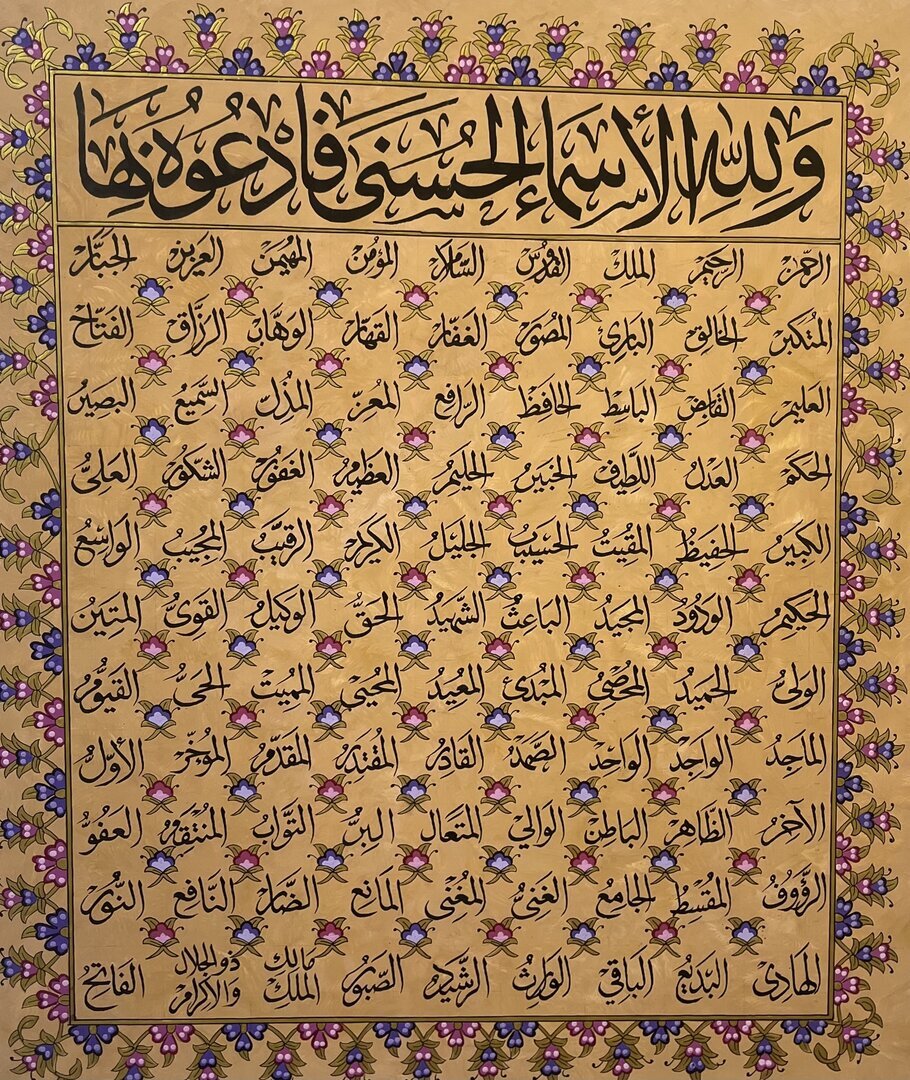 وَلِلَّهِ الأَسْمَاءُ الْحُسْنَى فَادْعُوهُ بِهَا
الرحمن الرحيم الملك القدوس السلام المؤمن المهيمن العزيز الجبار
المتكبر الخالق البارئ المصور الغفار القهار الوهاب الرزاق الفتاح
العليم القابض الباسط الحافظ الرافع المعز المذل السميع البصير
الحكم العدل اللطيف الخبير الحليم العظيم الغفور الشكور العلي
الكبير الحفيظ المقيت الحسيب الجليل الكريم الرقيب المجيب الواسع
الحكيم الودود المجيد الباعث الشهيد الحق الوكيل القوي المتين
الولي الحميد المحصي المبدئ المعيد المحيي المميت الحي القيوم
الماجد الواجد الواحد الصمد القادر المقتدر المقدم المؤخر الأول
الآخر الظاهر الباطن الوالي المتعال البر التواب المنتقم العفو
الرؤوف المقسط الجامع الغني المغني المانع الضار النافع النور
الهادي البديع الباقي الوارث الرشيد الصبور مالك الملك ذو الجلال والاكرام الفاتح